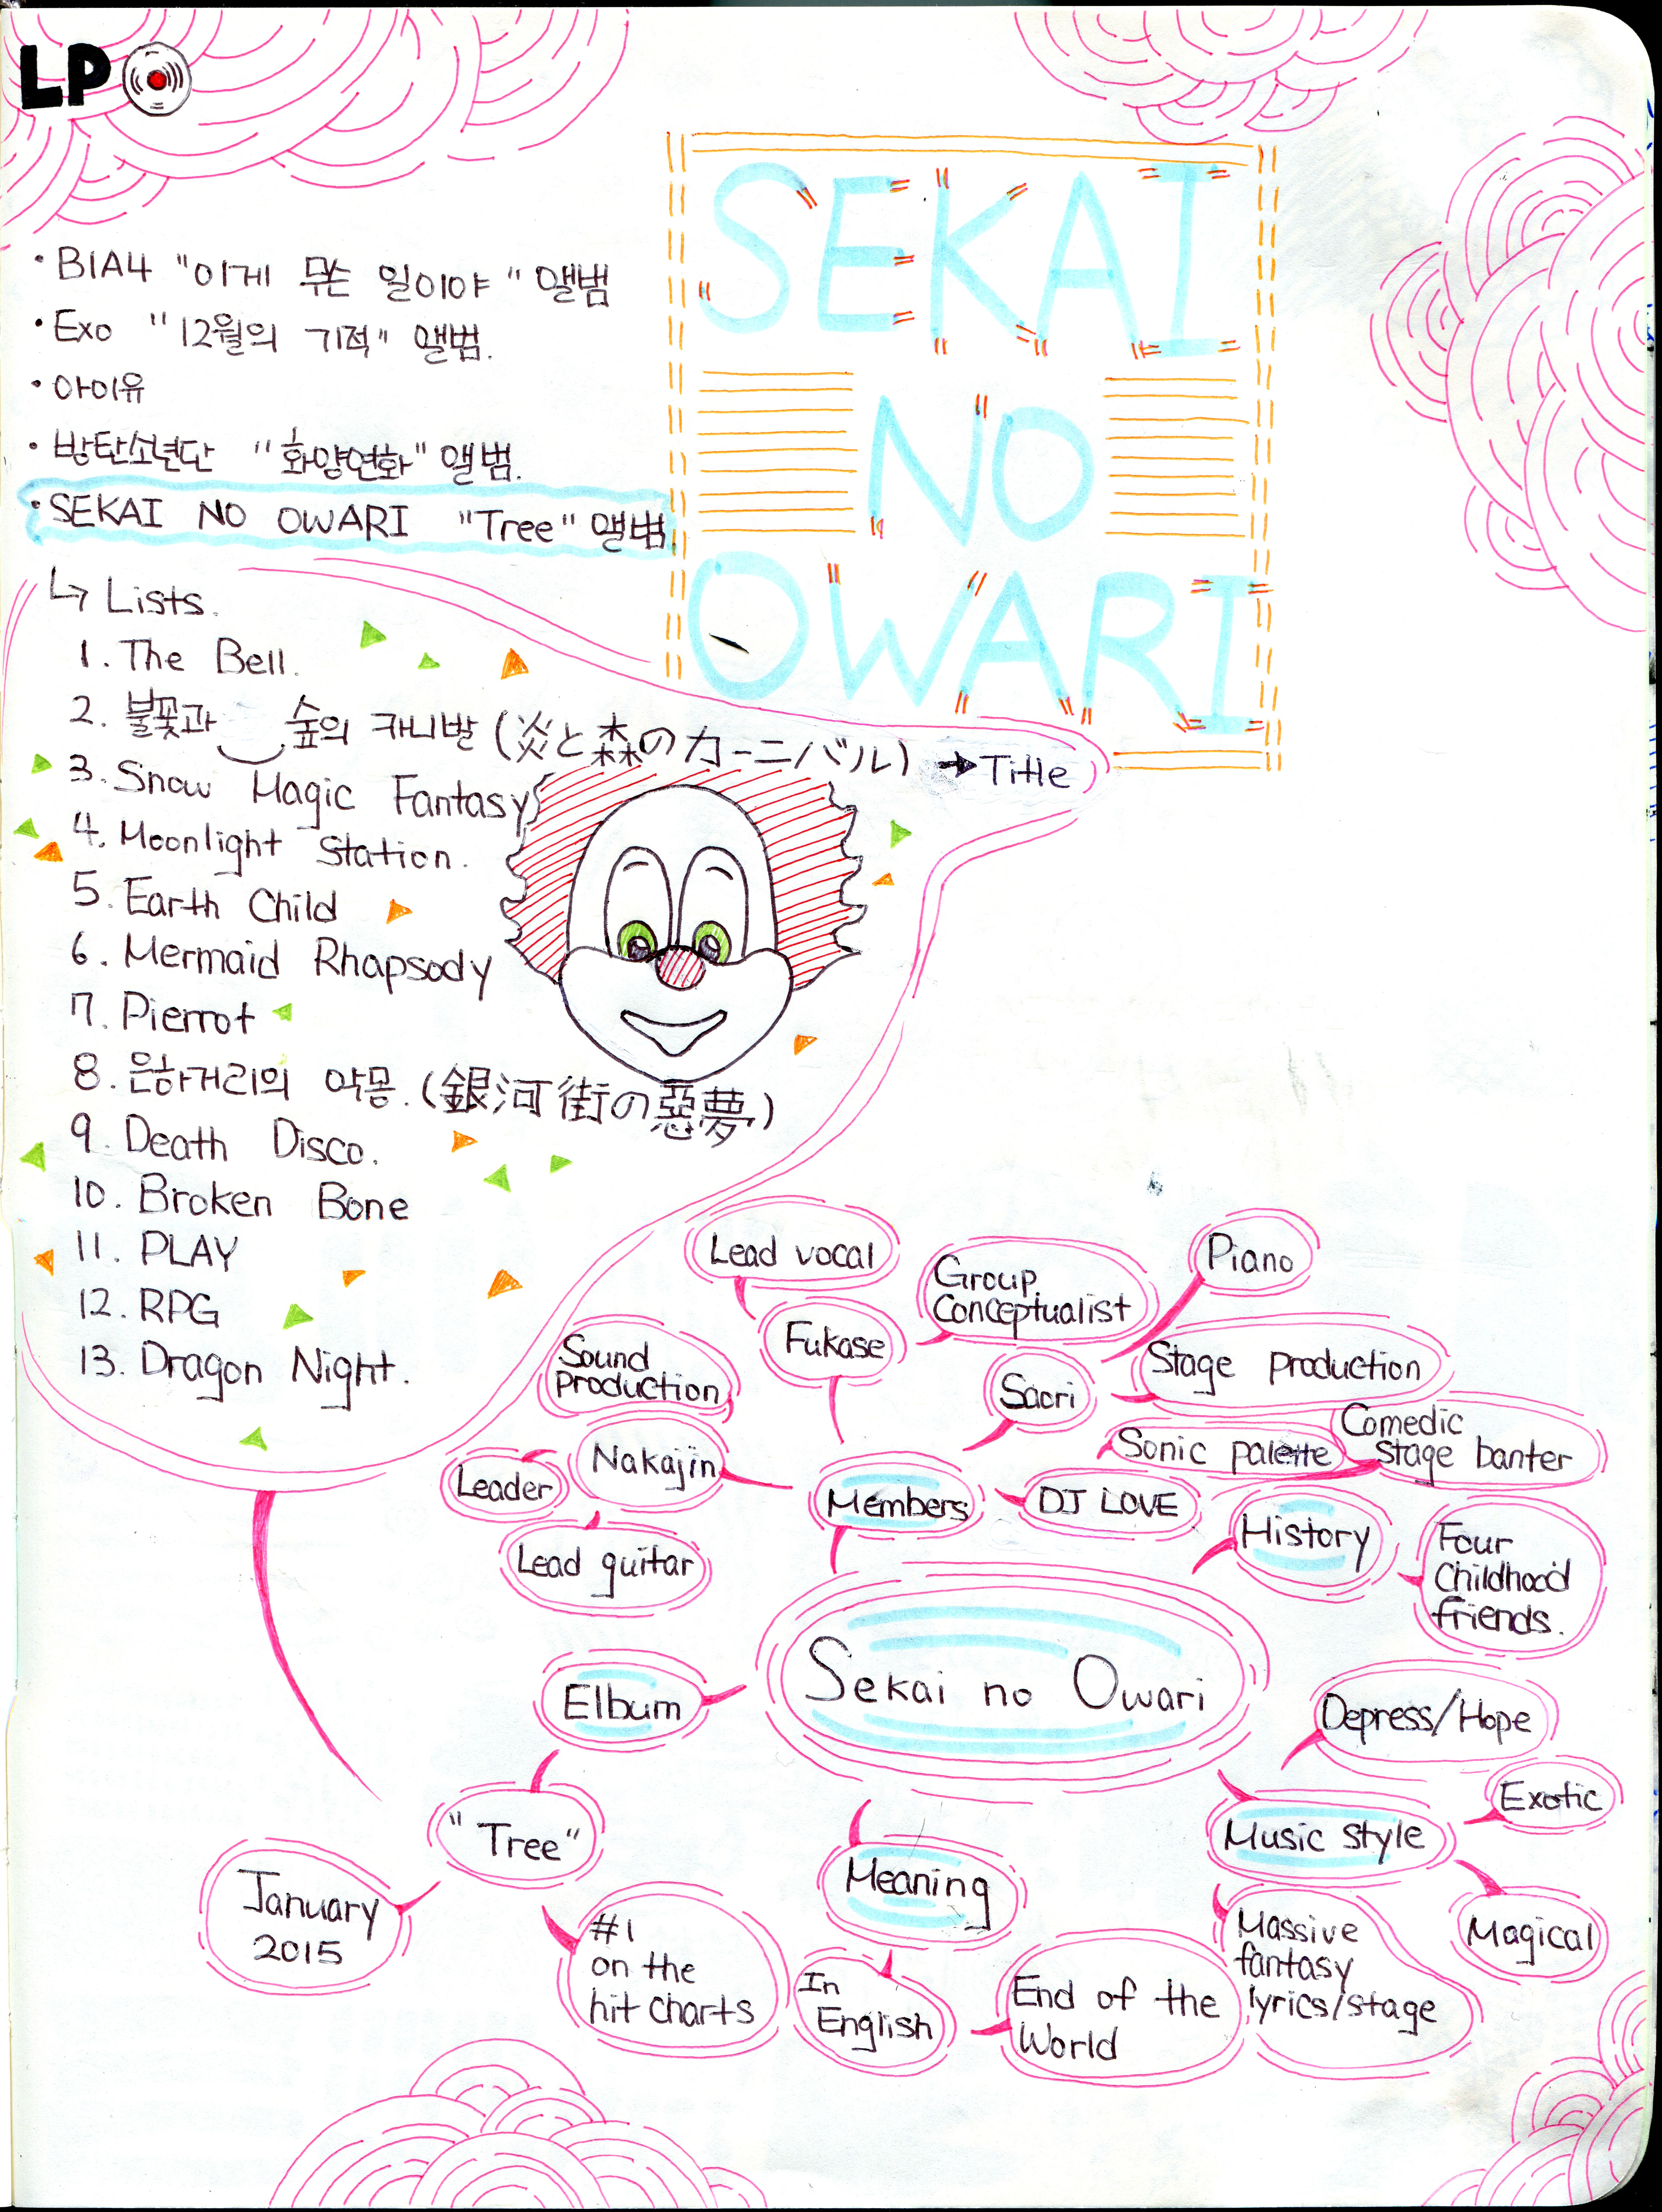 LP
SEKAI
NO
OWARI
• B1A4 "이게 무슨 일이야" 앨범
• Exo "12월의 기적" 앨범.
• 아이유
• 방탄소년단 "화양연화" 앨범.
• SEKAI NO OWARI "Tree" 앨범
↳ Lists.
1. The Bell.
2. 불꽃과 숲의 카니발 (炎と森のカーニバル) → Title
3. Snow Magic Fantasy
4. Moonlight Station.
5. Earth Child
6. Mermaid Rhapsody
7. Pierrot
8. 은하거리의 악몽. (銀河街の惡夢)
9. Death Disco.
10. Broken Bone
11. PLAY
12. RPG
13. Dragon Night.
Lead vocal
Group
Conceptualist
Piano
Fukase
Sound
production
Saori
Stage production
Nakajin
Leader
Lead guitar
Members
Sonic palette
Comedic
stage banter
DJ LOVE
History
Four
Childhood
friends.
Sekai no Owari
Elbum
"Tree"
January
2015
#1
on the
hit charts
Meaning
In
English
End of the
World
Depress/Hope
Exotic
Music style
Magical
Massive
fantasy
lyrics/stage